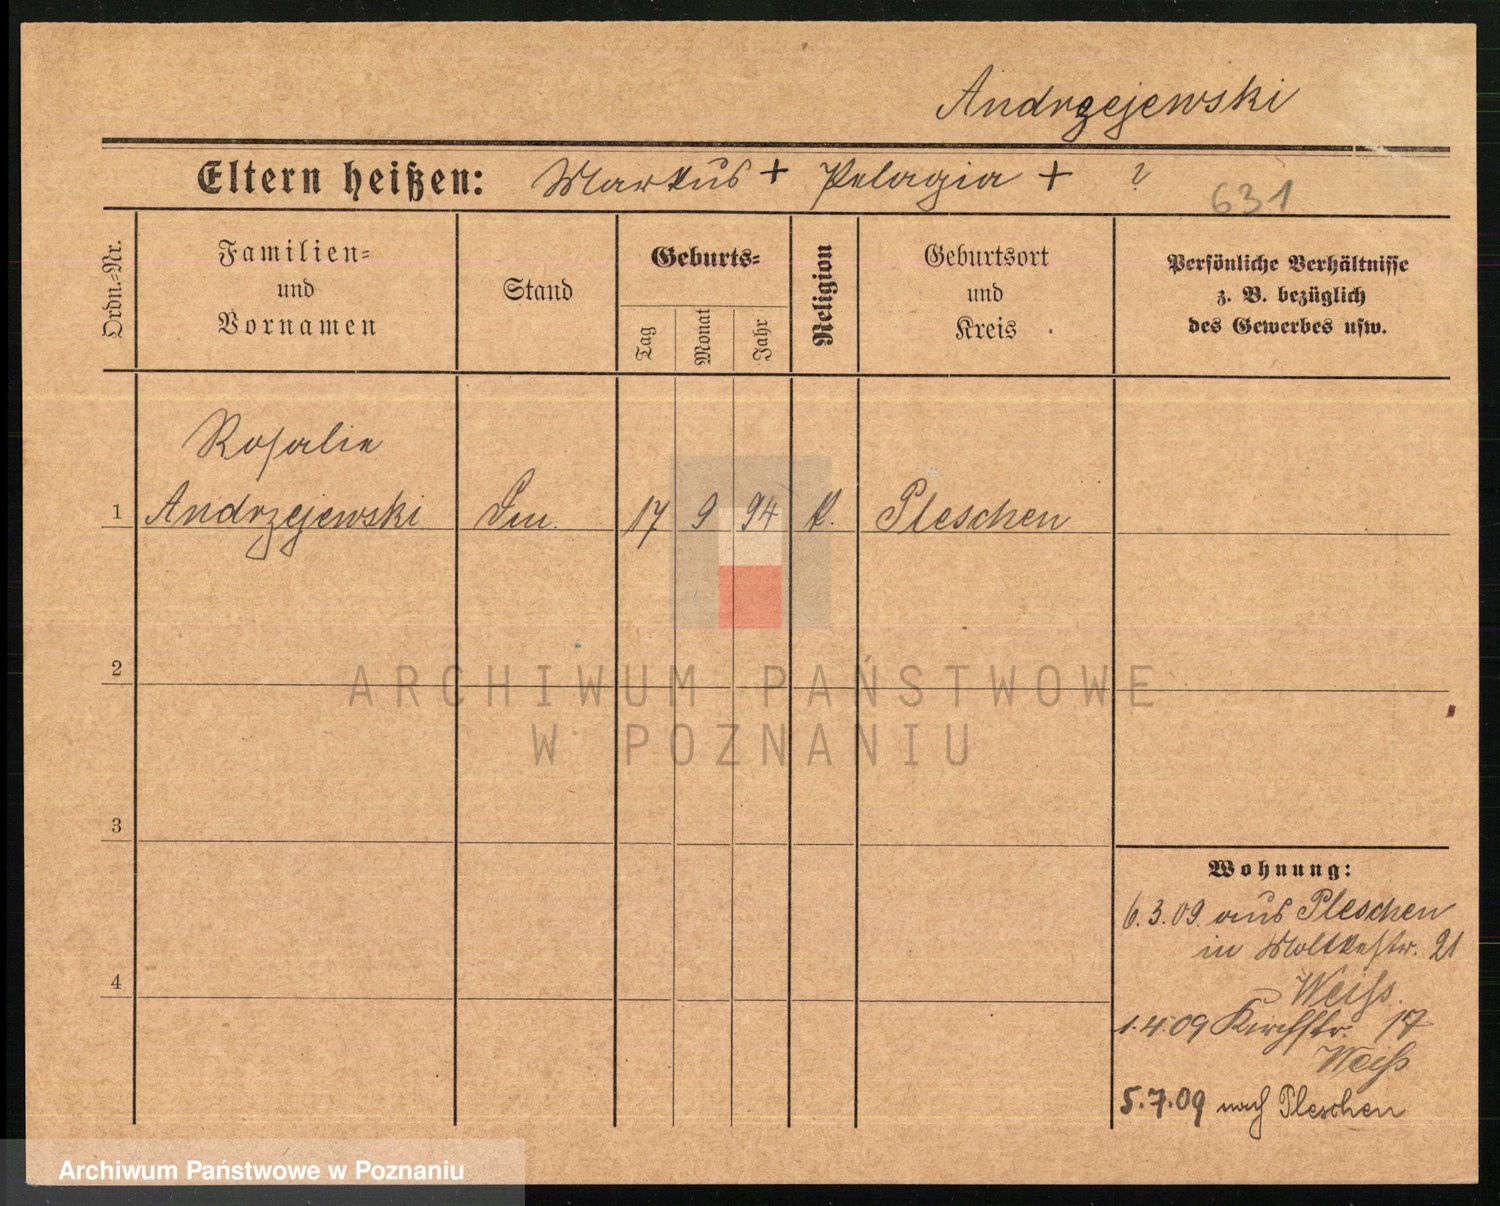 Andrzejewski
Eltern heißen: Markus + Pelagia + ?
631
Ordn.-Nr.
Familien-
und
Vornamen
Stand
Geburts-
Tag
Monat
Jahr
Religion
Geburtsort
und
Kreis
Persönliche Verhältnisse
z. B. bezüglich
des Gewerbes usw.
Rosalie
1 Andrzejewski 17 9 94 k. Pleschen
2
ARCHIWUM PAŃSTWOWE
W POZNANIU
3
Wohnung:
6.3.09. aus Pleschen
in Moltkestr. 21
Weiss.
4
1.4.09 Kirchstr. 17
Weiss
5.7.09 nach Pleschen
Archiwum Państwowe w Poznaniu